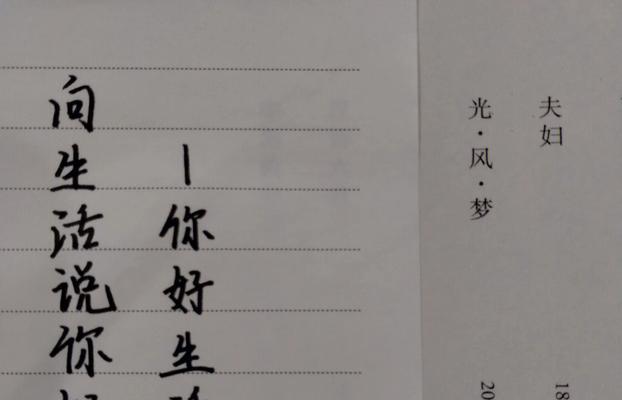 向生活说你
—你好生
夫妇 18
光·风·梦 20